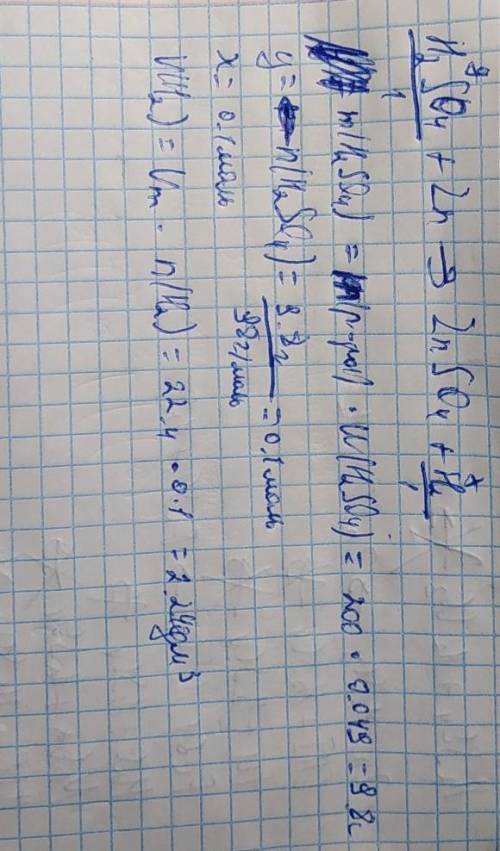 y x
H₂SO₄ + Zn → ZnSO₄ + H₂
1 1
m(H₂SO₄) = m(р-ра) · W(H₂SO₄) = 200 · 0.049 = 9.8г
y = n(H₂SO₄) = 9.8г / 98г/моль = 0.1моль
x = 0.1моль
V(H₂) = Vm · n(H₂) = 22.4 · 0.1 = 2.24дм³